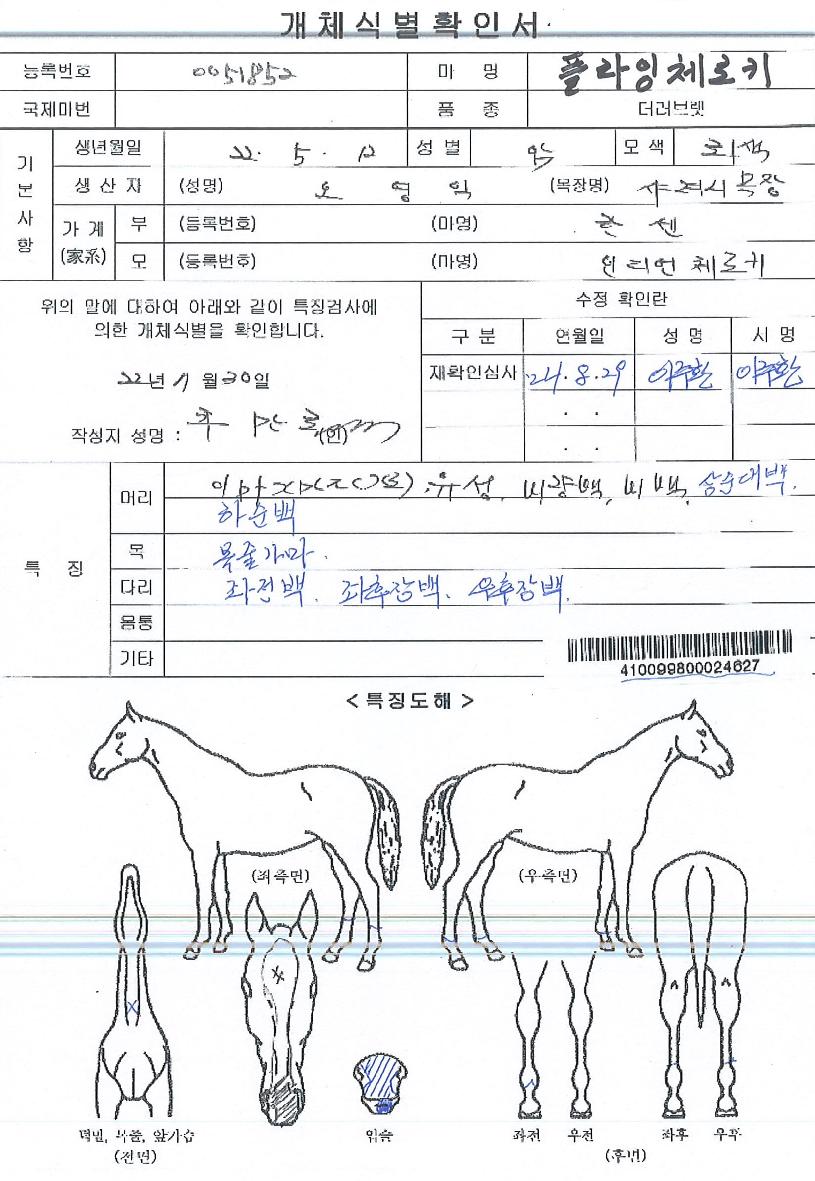 개체식별확인서
등록번호 0051852 마 명 플라잉체로키
국제마번 품 종 더러브렛
기본사항
생년월일 22. 5. 12 성 별 암 모 색 회색
생 산 자 (성명) 오 영 익 (목장명) 사려니목장
가 계 (家系) 부 (등록번호) (마명) 한센
모 (등록번호) (마명) 인디언체로키
위의 말에 대하여 아래와 같이 특징검사에
의한 개체식별을 확인합니다.
22년 월 30일
작성자 성명 : (인)
수정 확인란
구 분 연월일 성 명 서 명
재확인심사 24.8.29 이주환 이주환
특 징
머리 유성, 비량백, 비백, 상순대백.
하순백
목 목줄가마.
다리 좌전백. 좌후장백. 우후장백.
몸통
기타
410099800024627
<특징도해>
(좌측면) (우측면)
턱밑, 목줄, 앞가슴
(전면)
입술
좌전 우전 좌후 우후
(후면)